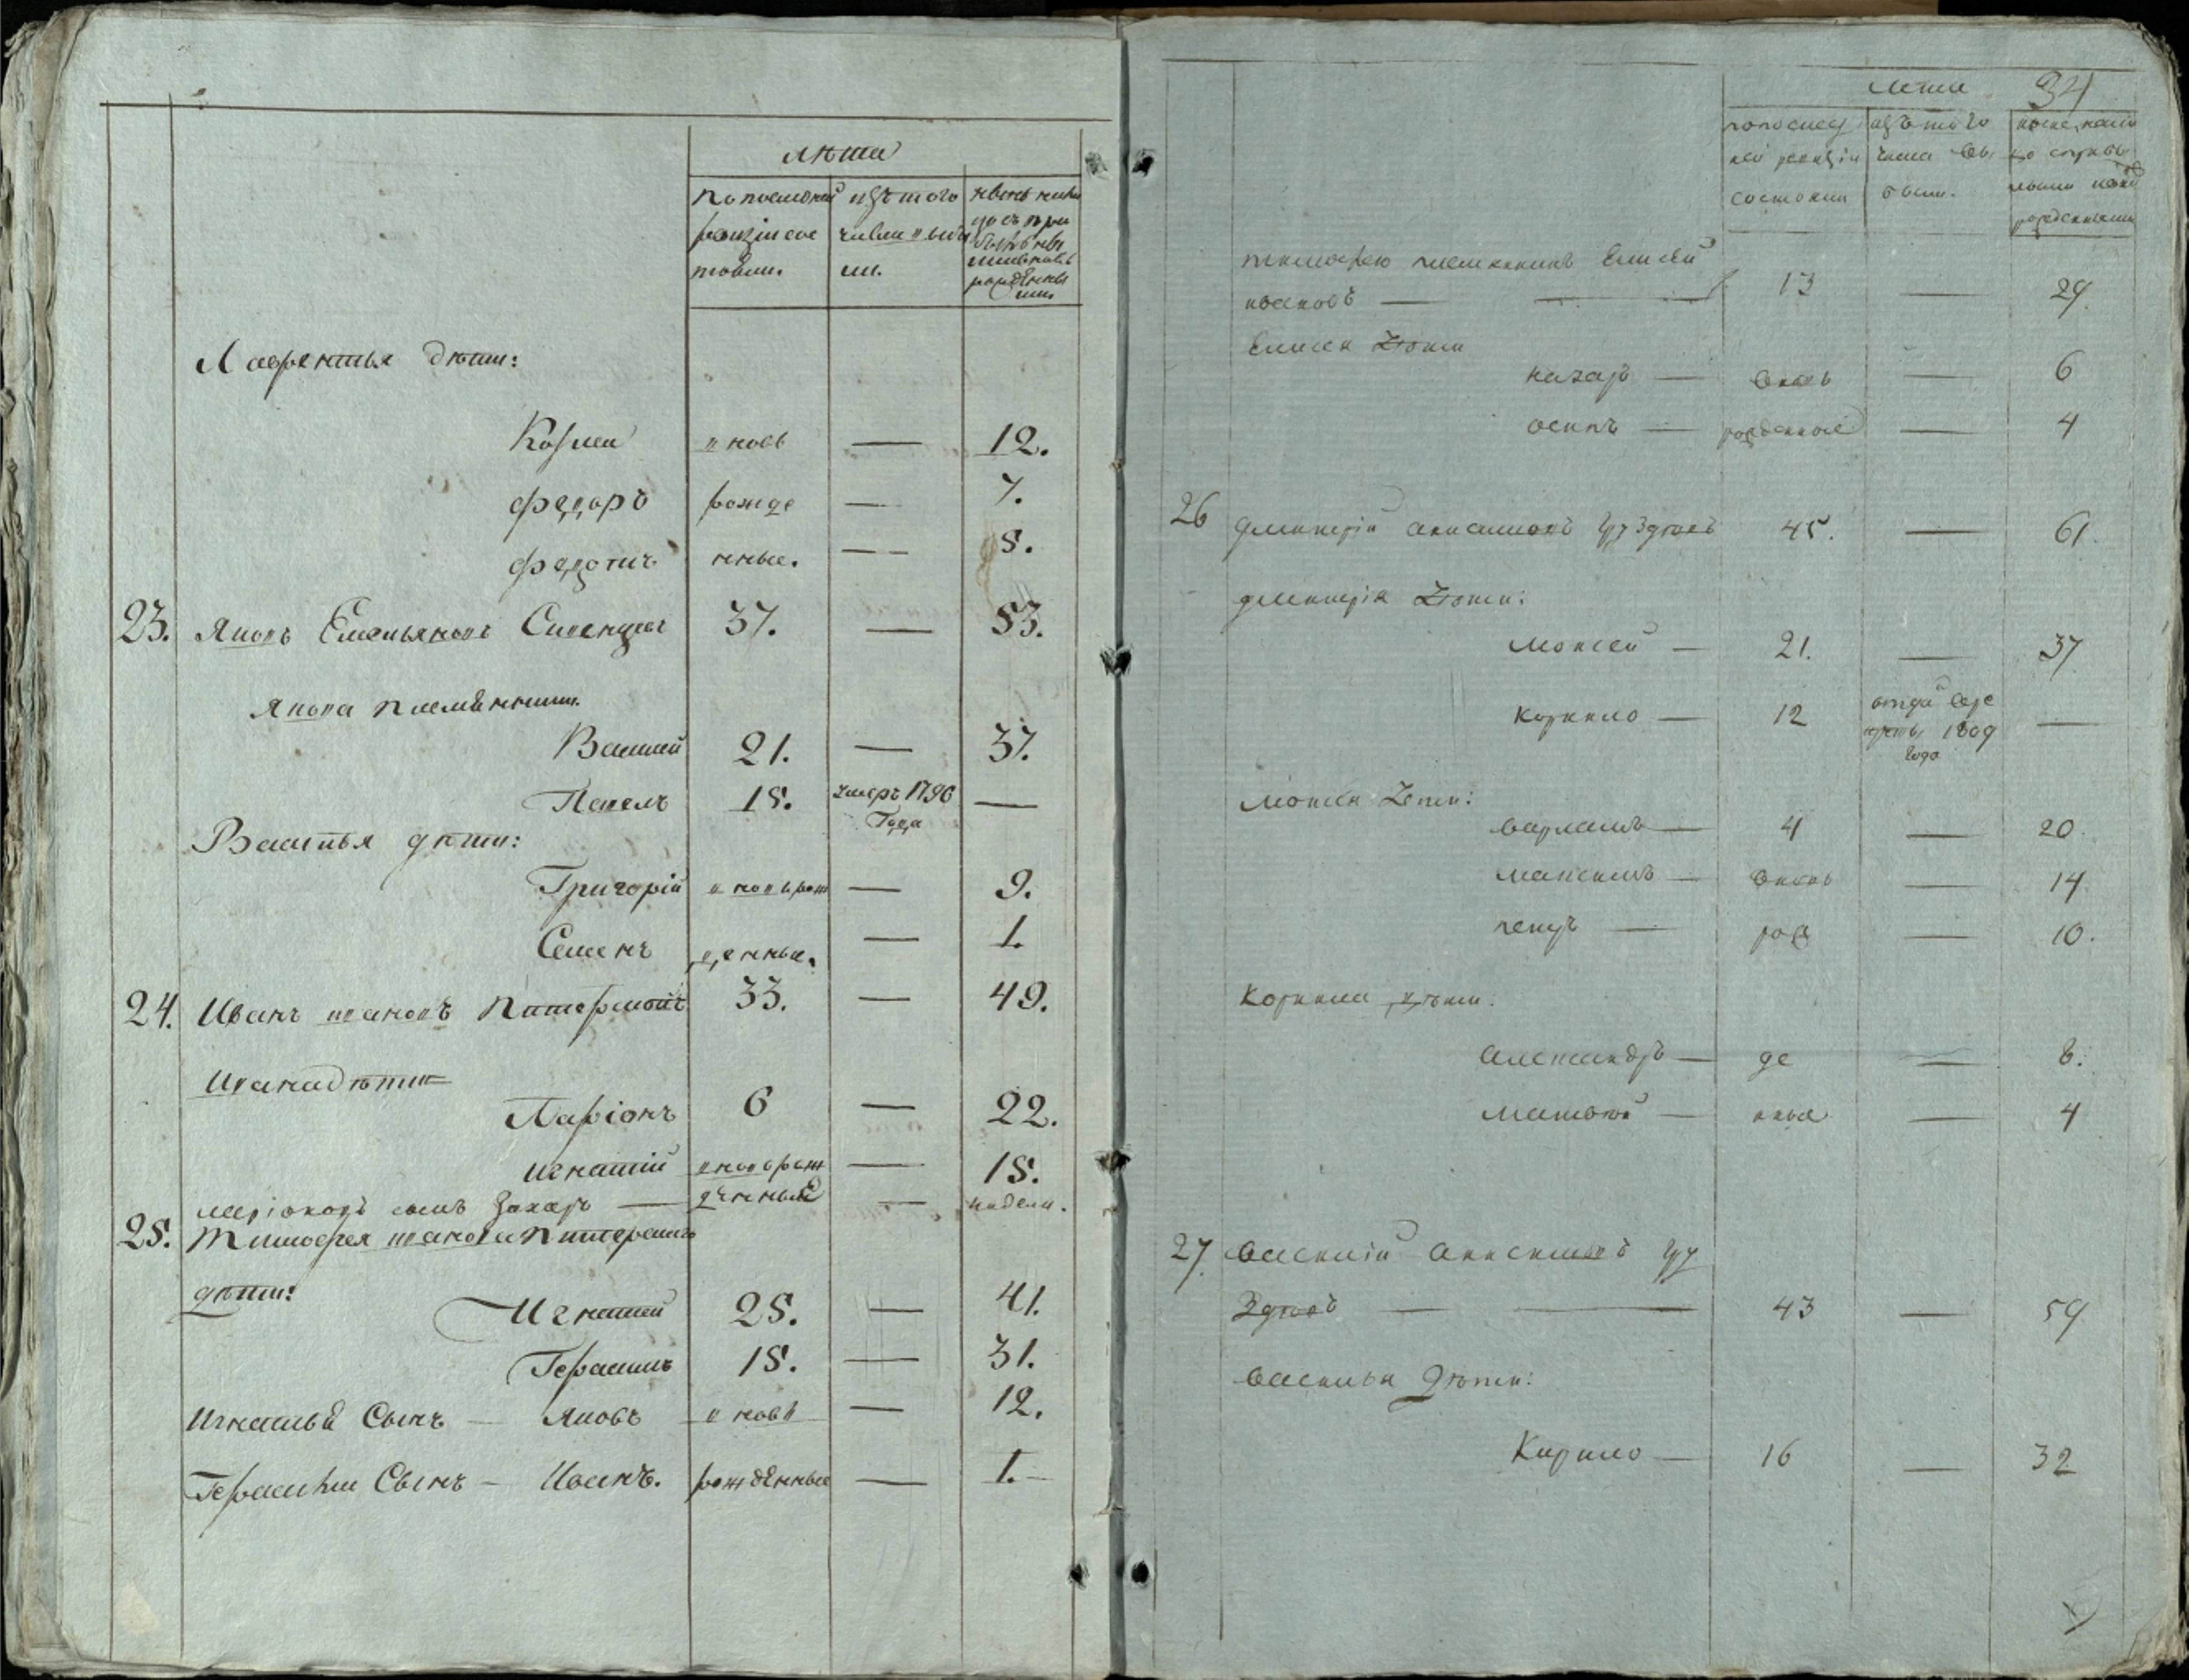 лѣта
по последней
ревизіи сос
тояли.
изъ того
числа выбы
ли.
нынѣ налицо съ при
бывшими
и вновь
рожденны
ми
Лаврентья дѣти:
Козма вновь — 12.
Федоръ рожде — 7.
Федотъ нные. — 5.
23. Яковъ Емельяновъ 37. — 53.
Якова племянники.
Василий 21. — 37.
Павелъ 15. умеръ 1796 —
Года
Василья дѣти:
Григорій вновь рож — 9.
Семенъ денные. — 1.
24. Иванъ Ивановъ 33. — 49.
Ивана дѣти
Ларіонъ 6 — 22.
Игнатій вновь рож — 15.
Ларіоновъ сынъ Захаръ — денные — недели.
25. Тимофея Иванова
дѣти:
Игнатей 25. — 41.
Герасимъ 15. — 31.
Игнатья Сынъ — Яковъ вновь — 12.
Герасима Сынъ — Иванъ. рожденные — 1.
лета 34
по послед
ней ревизіи
состояли
изъ того
числа вы
было.
ныне налицо
рожденными
Тимофею племянникъ Елисей
Ивановъ — 13 — 29.
Елисея дѣти
Назаръ — вновь — 6
Осипъ — рожденные — 4
26 Дмитрій Анисимовъ Груздевъ 45. — 61.
Дмитрія дѣти:
Моисей — 21. — 37
Корнило — 12 отдан в ре —
круты 1809
года
Моисея дети:
Варламъ — 4 — 20.
Максимъ — вновь — 14.
Петръ — рож — 10.
Корнила дѣти:
Александръ — де — 8.
Матвѣй — нные — 4
27. Василій Анисимовъ Гру
здевъ — 43 — 59
Василья дѣти:
Кирило — 16 — 32